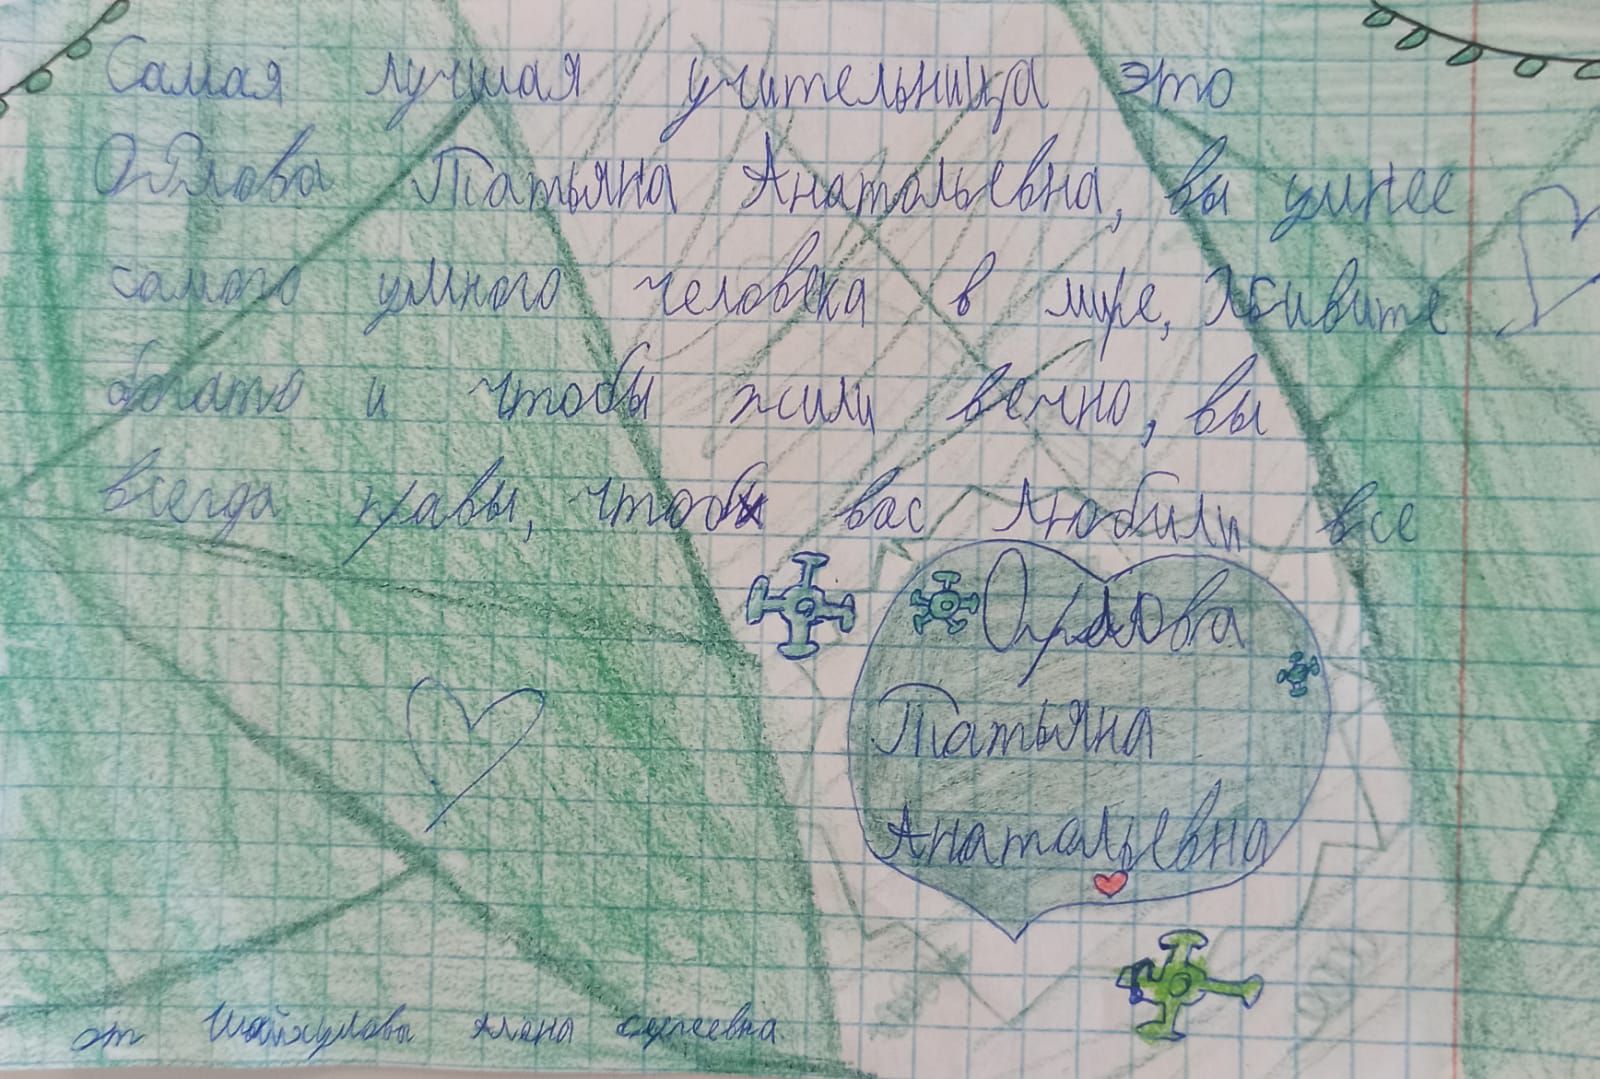 Самая лучшая учительница это
Орлова Татьяна Анатольевна, вы умнее
самого умного человека в мире, живите
богато и чтобы жили вечно, вы
всегда правы, чтоб вас любили все
Орлова
Татьяна
Анатольевна
от Шайхулова Алёна сергеевна